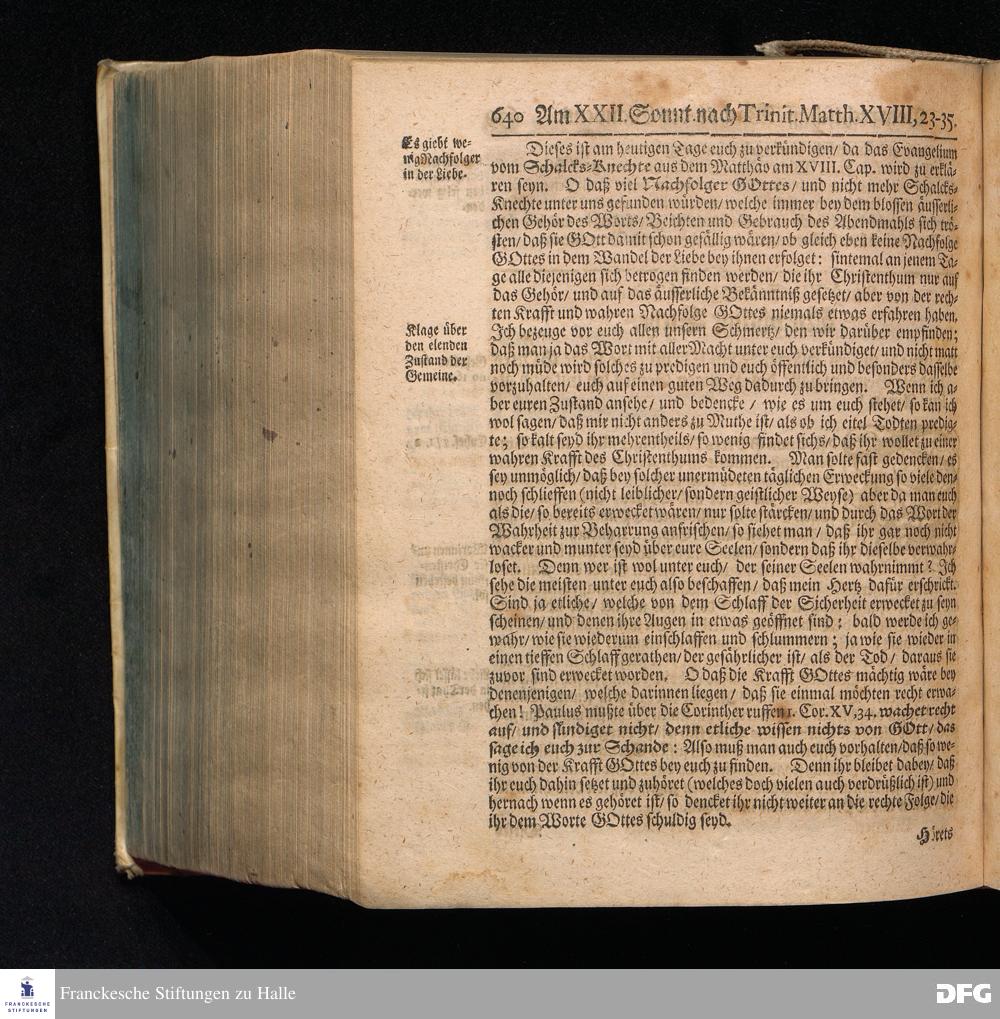 640 Am XXII. Sonnt. nach Trinit. Matth. XVIII, 23-35.
Es giebt we-
nig Nachfolger
in der Liebe.
Dieses ist am heutigen Tage euch zu verkündigen/ da das Evangelium
vom Schalcks-Knechte aus dem Matthäo am XVIII. Cap. wird zu erklä-
ren seyn. O daß viel Nachfolger GOttes/ und nicht mehr Schalcks-
Knechte unter uns gefunden würden/ welche immer bey dem blossen äusserli-
chen Gehör des Worts/ Beichten und Gebrauch des Abendmahls sich trö-
sten/ daß sie GOtt damit schon gefällig wären/ ob gleich eben keine Nachfolge
GOttes in dem Wandel der Liebe bey ihnen erfolget: sintemal an jenem Ta-
ge alle diejenigen sich betrogen finden werden/ die ihr Christenthum nur auf
das Gehör/ und auf das äusserliche Bekänntniß gesetzet/ aber von der rech-
ten Krafft und wahren Nachfolge GOttes niemals etwas erfahren haben.
Klage über
den elenden
Zustand der
Gemeine.
Ich bezeuge vor euch allen unsern Schmertz/ den wir darüber empfinden;
daß man ja das Wort mit aller Macht unter euch verkündiget/ und nicht matt
noch müde wird solches zu predigen und euch öffentlich und besonders dasselbe
vorzuhalten/ euch auf einen guten Weg dadurch zu bringen. Wenn ich a-
ber euren Zustand ansehe/ und bedencke/ wie es um euch stehet/ so kan ich
wol sagen/ daß mir nicht anders zu Muthe ist/ als ob ich eitel Todten predig-
te; so kalt seyd ihr mehrentheils/ so wenig findet sichs/ daß ihr wollet zu einer
wahren Krafft des Christenthums kommen. Man solte fast gedencken/ es
sey unmöglich/ daß bey solcher unermüdeten täglichen Erweckung so viele den-
noch schlieffen (nicht leiblicher/ sondern geistlicher Weyse) aber da man euch
als die/ so bereits erwecket wären/ nur solte stärcken/ und durch das Wort der
Wahrheit zur Beharrung anfrischen/ so siehet man/ daß ihr gar noch nicht
wacker und munter seyd über eure Seelen/ sondern daß ihr dieselbe verwahr-
loset. Denn wer ist wol unter euch/ der seiner Seelen wahrnimmt? Ich
sehe die meisten unter euch also beschaffen/ daß mein Hertz dafür erschrickt.
Sind ja etliche/ welche von dem Schlaff der Sicherheit erwecket zu seyn
scheinen/ und denen ihre Augen in etwas geöffnet sind: bald werde ich ge-
wahr/ wie sie wiederum einschlaffen und schlummern; ja wie sie wieder in
einen tieffen Schlaff gerathen/ der gefährlicher ist/ als der Tod/ daraus sie
zuvor sind erwecket worden. O daß die Krafft GOttes mächtig wäre bey
denenjenigen/ welche darinnen liegen/ daß sie einmal möchten recht erwa-
chen! Paulus mußte über die Corinther ruffen 1. Cor. XV, 34. wachet recht
auf/ und sündiget nicht/ denn etliche wissen nichts von GOtt/ das
sage ich euch zur Schande: Also muß man auch euch vorhalten/ daß so we-
nig von der Krafft GOttes bey euch zu finden. Denn ihr bleibet dabey/ daß
ihr euch dahin setzet und zuhöret (welches doch vielen auch verdrüßlich ist) und
hernach wenn es gehöret ist/ so dencket ihr nicht weiter an die rechte Folge/ die
ihr dem Worte GOttes schuldig seyd.
Hörets
FRANCKESCHE
STIFTUNGEN
Franckesche Stiftungen zu Halle
DFG